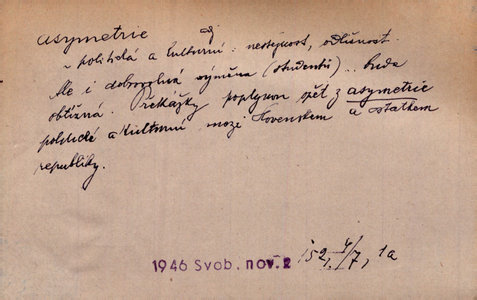 asymetrie
politická a kulturní: nestejnost, odlišnost.
Ale i dobrovolná výměna (studentů)... bude
obtížná. Překážky poplynou opět z asymetrie
politické a kulturní mezi Slovenskem a ostatkem
republiky.
1946 Svob. nov. 2
1a